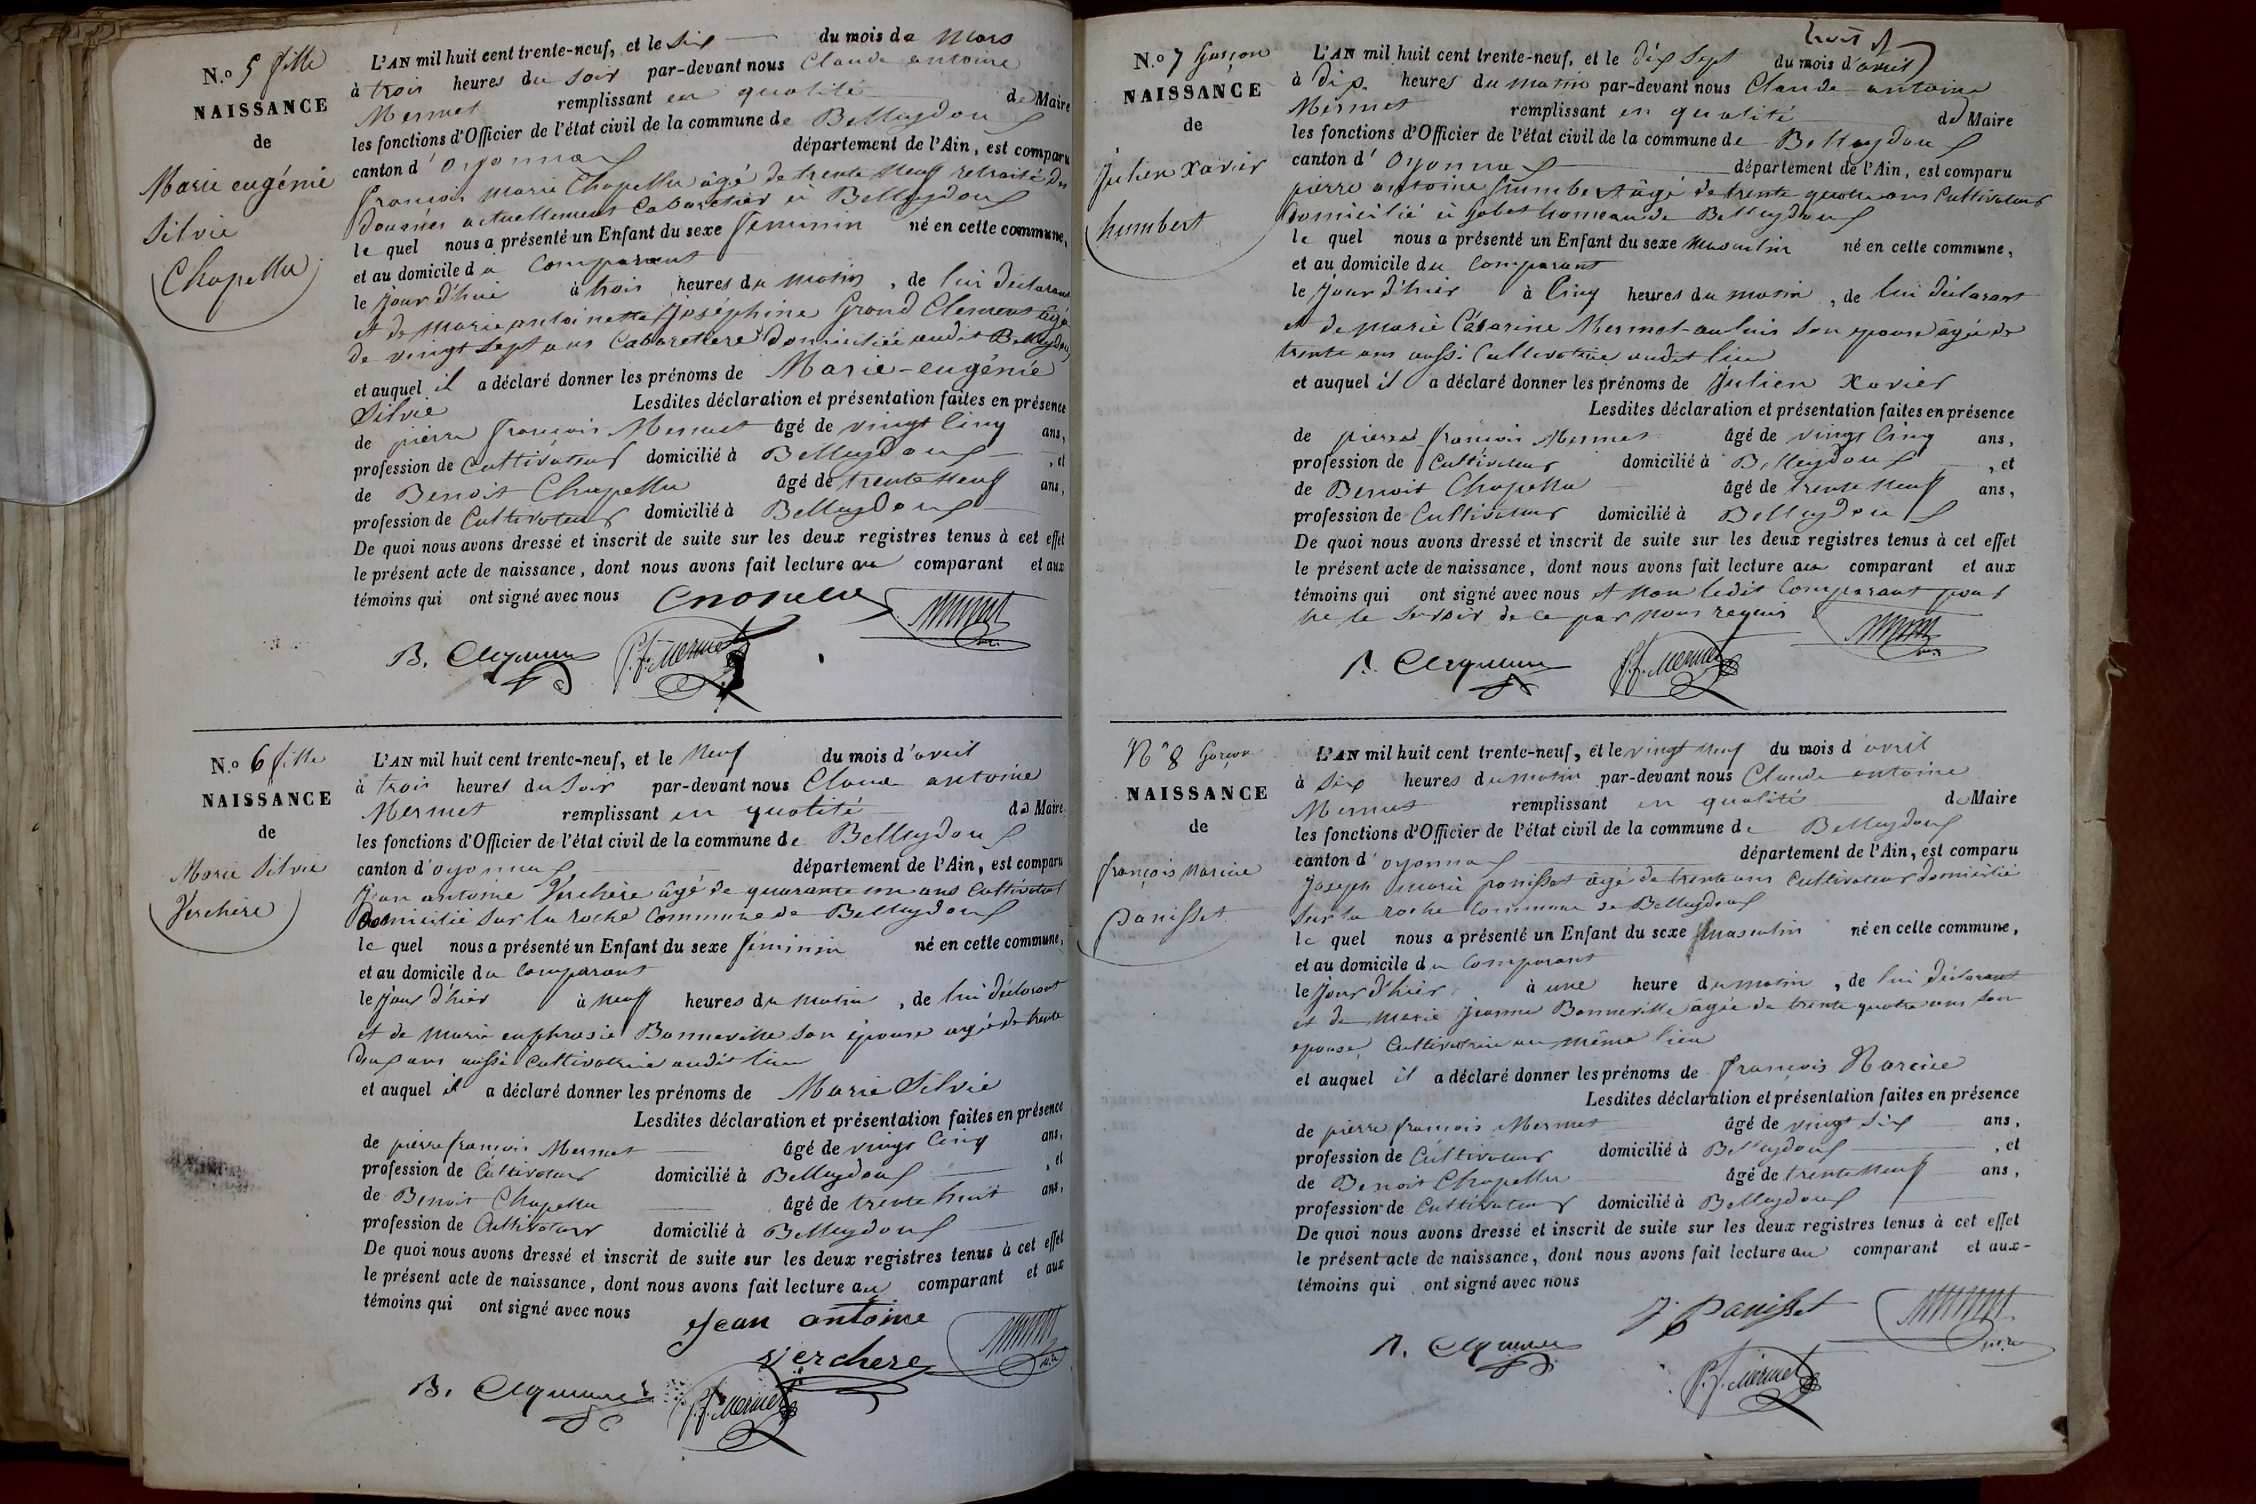 N.o 5 fille
NAISSANCE
de
Marie eugénie
Silvie
Chapellu
L'AN mil huit cent trente-neuf, et le Six du mois de Mars
à trois heures du Soir par-devant nous Claude antoine
Mermet remplissant en qualité de Maire
les fonctions d'Officier de l'état civil de la commune de Belleydoux
canton d'Oyonnax département de l'Ain, est comparu
françois marie Chapellu âgé de trente Neuf retraité des
douanes actuellement Cabaretier à Belleydoux
le quel nous a présenté un Enfant du sexe feminin né en cette commune,
et au domicile du Comparant
le Jour d'hui à trois heures du matin, de lui déclarant
et de marie antoinette Joséphine Grand Clement âgé
de vingt Sept ans Cabaretiere domiciliée audit Belleydoux
et auquel il a déclaré donner les prénoms de Marie-eugénie
Silvie Lesdites déclaration et présentation faites en présence
de pierre françois Mermet âgé de vingt Cinq ans,
profession de Cultivateur domicilié à Belleydoux, et
de Benoit Chapellu âgé de trente Neuf ans,
profession de Cultivateur domicilié à Belleydoux
De quoi nous avons dressé et inscrit de suite sur les deux registres tenus à cet effet
le présent acte de naissance, dont nous avons fait lecture au comparant et aux
témoins qui ont signé avec nous
P. f. Mermet
N.o 6 fille
NAISSANCE
de
Marie Silvie
Verchère
L'AN mil huit cent trente-neuf, et le Neuf du mois d'avril
à trois heures du Soir par-devant nous Claude antoine
Mermet remplissant en qualité de Maire
les fonctions d'Officier de l'état civil de la commune de Belleydoux
canton d'oyonnax département de l'Ain, est comparu
Jean antoine Verchère âgé de quarante un ans Cultivateur
Domicilié Sur la roche Commune de Belleydoux
le quel nous a présenté un Enfant du sexe féminin né en cette commune,
et au domicile du Comparant
le Jour d'hier à Neuf heures du matin, de lui déclarant
et de Marie euphrosie Bonneville son épouse agée de trente
Deux ans aussi cultivatrice audit lieu
et auquel il a déclaré donner les prénoms de Marie Silvie
Lesdites déclaration et présentation faites en présence
de pierre françois Mermet âgé de vingt Cinq ans,
profession de Cultivateur domicilié à Belleydoux, et
de Benoit Chapellu âgé de trente huit ans,
profession de Cultivateur domicilié à Belleydoux
De quoi nous avons dressé et inscrit de suite sur les deux registres tenus à cet effet
le présent acte de naissance, dont nous avons fait lecture au comparant et aux
témoins qui ont signé avec nous
Jean antoine
verchere
P. f. Mermet
N.o 7 Garçon
NAISSANCE
de
Julien Xavier
humbert
L'AN mil huit cent trente-neuf, et le Dix Sept du mois d'avril
à Dix heures du matin par-devant nous Claude antoine
Mermet remplissant en qualité de Maire
les fonctions d'Officier de l'état civil de la commune de Belleydoux
canton d'Oyonnax département de l'Ain, est comparu
pierre antoine humbert âgé de trente quatre ans Cultivateur
Domicilié à Gobet hameau de Belleydoux
le quel nous a présenté un Enfant du sexe masculin né en cette commune,
et au domicile du Comparant
le Jour d'hier à Cinq heures du matin, de lui déclarant
et de marie Césarine Mermet-aulouis Son epouse âgée de
trente ans aussi Cultivatrice audit lieu
et auquel il a déclaré donner les prénoms de Julien Xavier
Lesdites déclaration et présentation faites en présence
de pierre françois Mermet âgé de vingt Cinq ans,
profession de Cultivateur domicilié à Belleydoux, et
de Benoit Chapellu âgé de trente Neuf ans,
profession de Cultivateur domicilié à Belleydoux
De quoi nous avons dressé et inscrit de suite sur les deux registres tenus à cet effet
le présent acte de naissance, dont nous avons fait lecture au comparant et aux
témoins qui ont signé avec nous et Non ledit Comparant pour
ne le Savoir de ce par nous requis
P. f. Mermet
N° 8 Garçon
NAISSANCE
de
françois Narcice
panisset
L'AN mil huit cent trente-neuf, et le vingt Neuf du mois d'avril
à Six heures du matin par-devant nous Claude antoine
Mermet remplissant en qualité de Maire
les fonctions d'Officier de l'état civil de la commune de Belleydoux
canton d'oyonnax département de l'Ain, est comparu
Joseph marie panisset âgé de trente ans Cultivateur domicilié
Sur la roche Commune de Belleydoux
le quel nous a présenté un Enfant du sexe masculin né en cette commune,
et au domicile du Comparant
le Jour d'hier à une heure du matin, de lui déclarant
et de Marie Jeanne Bonneville âgée de trente quatre ans son
epouse, Cultivatrice au même lieu
et auquel il a déclaré donner les prénoms de françois Narcice
Lesdites déclaration et présentation faites en présence
de pierre françois Mermet âgé de vingt Six ans,
profession de Cultivateur domicilié à Belleydoux, et
de Benoit Chapellu âgé de trente Neuf ans,
profession de Cultivateur domicilié à Belleydoux
De quoi nous avons dressé et inscrit de suite sur les deux registres tenus à cet effet
le présent acte de naissance, dont nous avons fait lecture au comparant et aux-
témoins qui ont signé avec nous
J. Panisset
P. f. Mermet